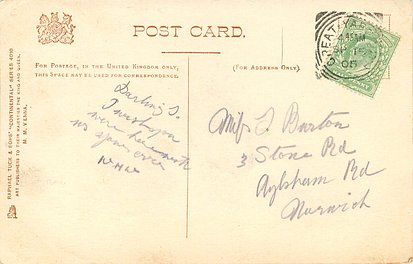 POST CARD.
FOR POSTAGE, IN THE UNITED KINGDOM ONLY,
THIS SPACE MAY BE USED FOR CORRESPONDENCE.
(FOR ADDRESS ONLY.)
GREAT YARMOUTH
05
RAPHAEL TUCK & SONS' "CONTINENTAL" SERIES 4010
ART PUBLISHERS TO THEIR MAJESTIES THE KING AND QUEEN.
M. M. VIENNA.
Darling J.
I wish you
were here with
us
Miss J Burton
3 Stone Rd
Aylsham Rd
Norwich